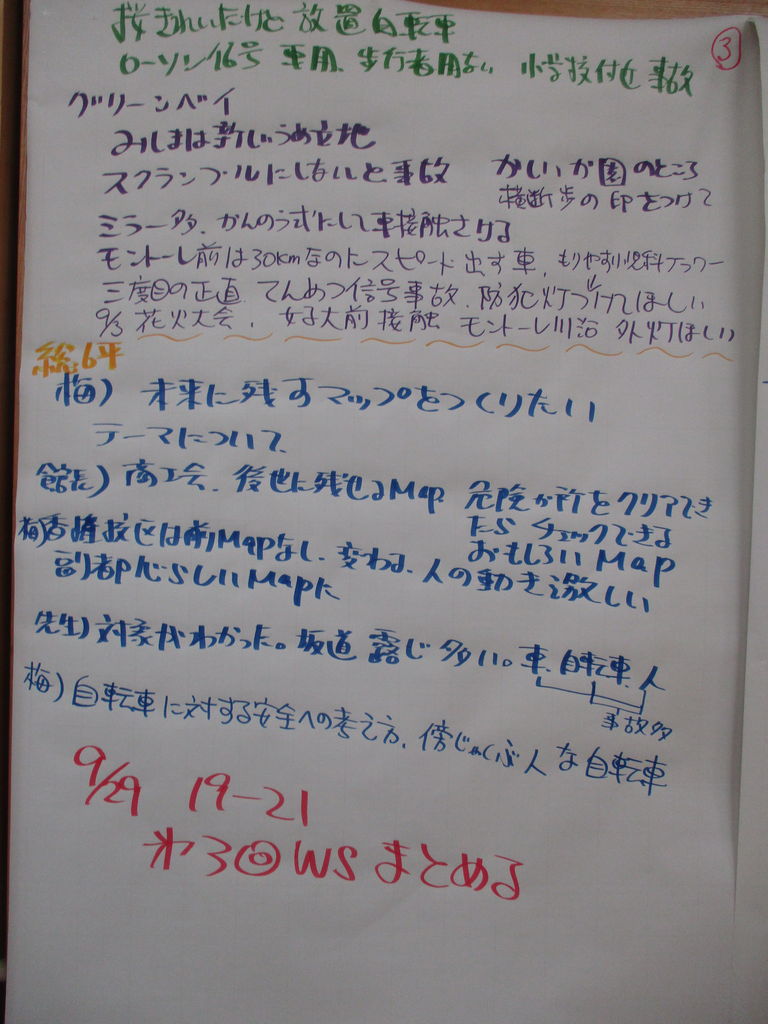 ③
きれいだけど 放置自転車
ローソン16号 専用、歩行者用ない 小学校付近 事故
グリーンベイ
みしまは新しいうめ立地
スクランブルにしないと事故 かしいか園のところ
横断歩の印をつけて
ミラー多、かんのうずにして車接触さける
モノレール前は30kmなのにスピード出す車、もりやす小児科フラワー
三度目の正直 てんめつ信号事故、防犯灯つけてほしい
9/3 花火大会、女子大前接触 外灯ほしい
総評
梅) 未来に残すマップをつくりたい
テーマについて
館長) 商工会、後世に残せるMap 危険か所をクリアでき
たらチェックできる
おもしろいMap
梅)香椎校区は前Mapなし、変わる、人の動き激しい
副都心らしいMapに
先生) 対象がわかった。坂道 多い。車、自転車、人
事故多
梅) 自転車に対する安全への考え方、傍じゃくぶ人な自転車
9/29 19-21
オ3回WSまとめる